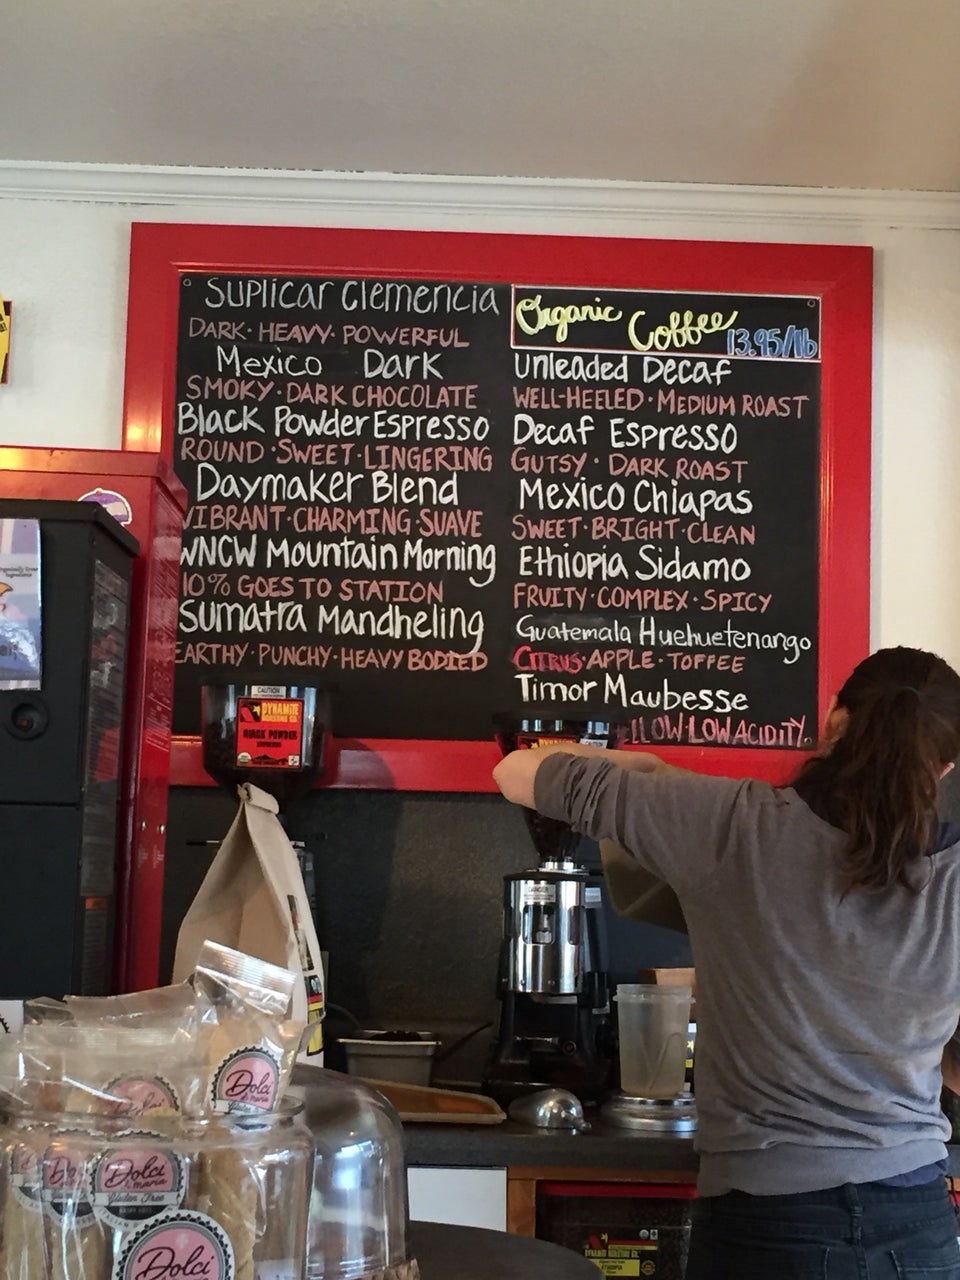 Suplicar Clemencia
DARK · HEAVY · POWERFUL
Mexico Dark
SMOKY · DARK CHOCOLATE
Black Powder Espresso
ROUND · SWEET · LINGERING
Daymaker Blend
VIBRANT · CHARMING · SUAVE
WNCW Mountain Morning
10% GOES TO STATION
Sumatra Mandheling
EARTHY · PUNCHY · HEAVY BODIED
Organic Coffee 13.95/lb
Unleaded Decaf
WELL-HEELED · MEDIUM ROAST
Decaf Espresso
GUTSY · DARK ROAST
Mexico Chiapas
SWEET · BRIGHT · CLEAN
Ethiopia Sidamo
FRUITY · COMPLEX · SPICY
Guatemala Huehuetenango
CITRUS · APPLE · TOFFEE
Timor Maubesse
LLOW · LOW ACIDITY
CAUTION
DYNAMITE
ROASTING CO.
BLACK POWDER
ESPRESSO
Dolci
di maria
Dolci
di maria
Gluten Free
Dolci
DYNAMITE
ROASTING CO.
ETHIOPIA